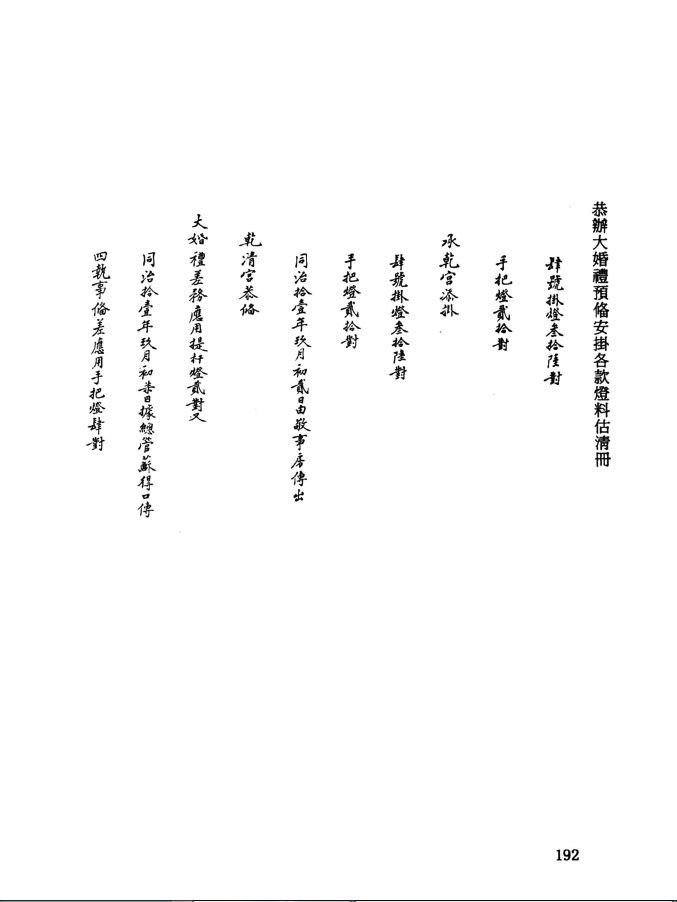 恭辦大婚禮預俻安掛各款燈料估清冊
肆號掛燈叁拾陸對
手把燈貳拾對
承乾宮添掛
肆號掛燈叁拾陸對
手把燈貳拾對
同治拾壹年玖月初貳日由敬事房傳出
乾清宮恭俻
大婚禮差務應用提杆燈貳對又
同治拾壹年玖月初柒日據總管蘇得口傳
四執事俻差應用手把燈肆對
192